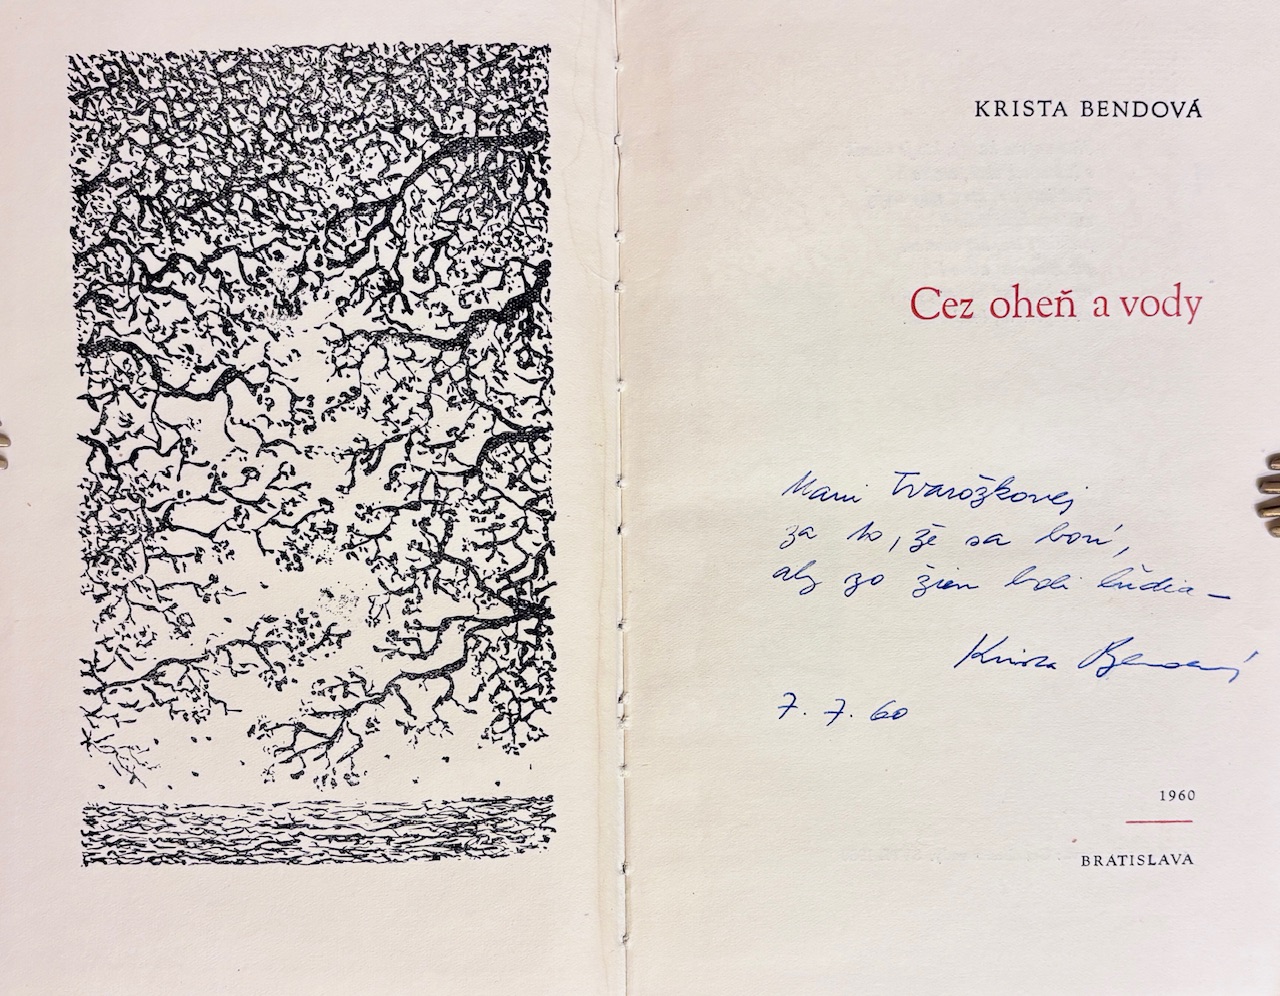 KRISTA BENDOVÁ
Cez oheň a vody
Mani Tvarožkovej
za to, že sa borí,
aby zo žien boli ľudia –
Krista Bendová
7. 7. 60
1960
BRATISLAVA